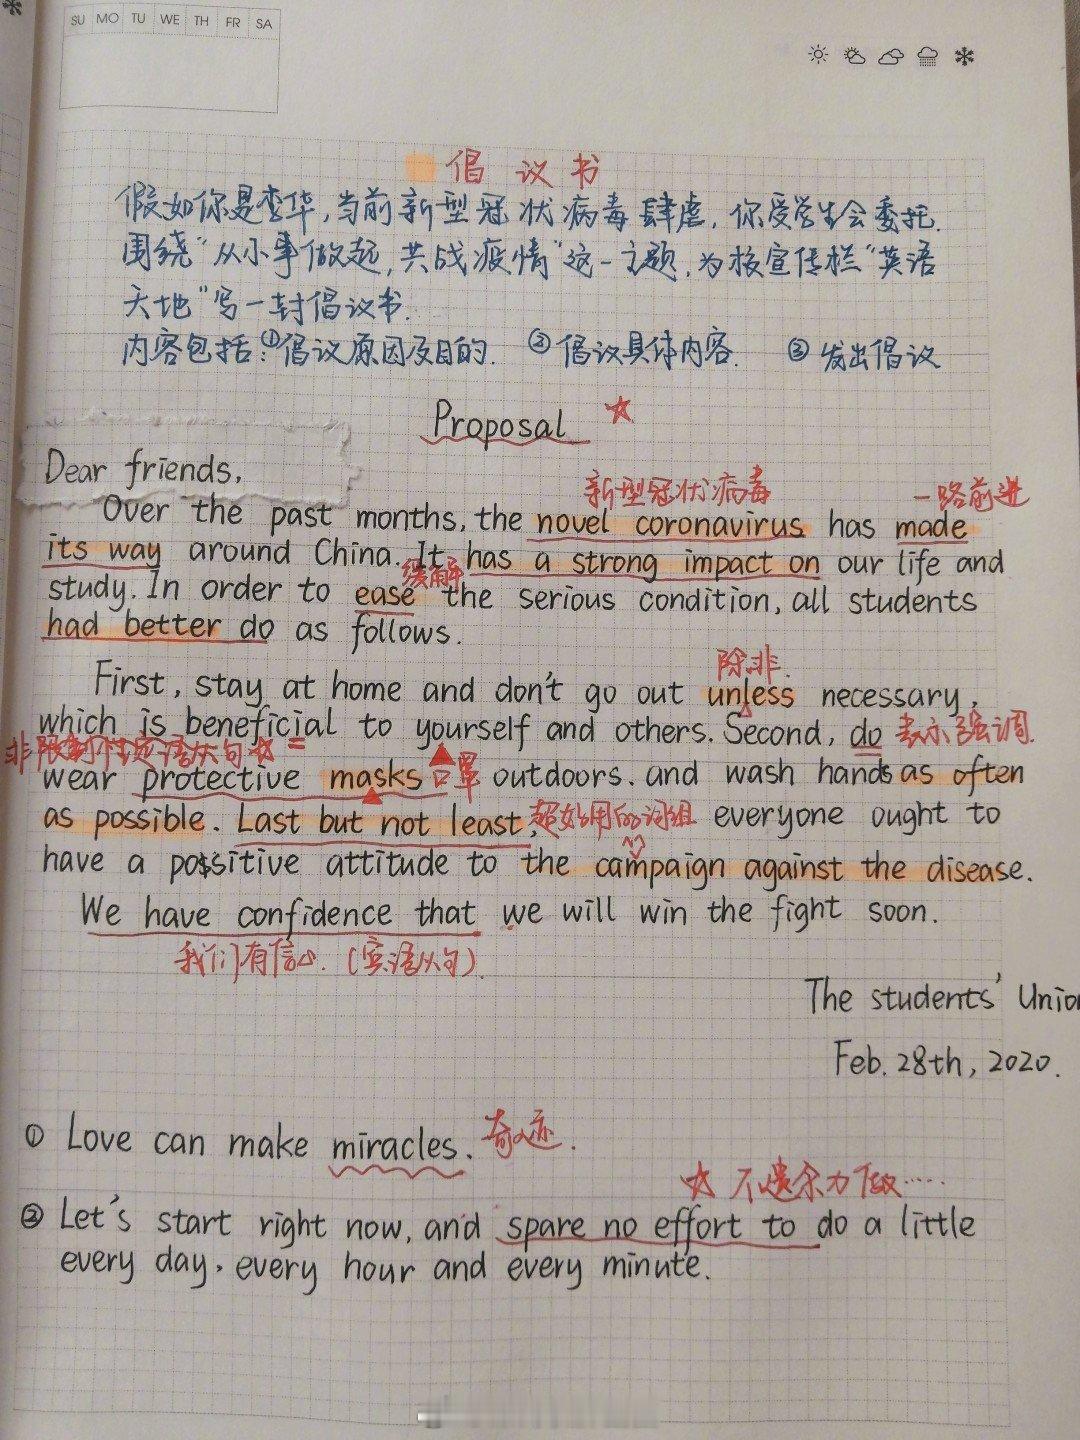 SU MO TU WE TH FR SA
倡议书
假如你是李华,当前新型冠状病毒肆虐,你受学生会委托.
围绕“从小事做起,共战疫情”这一主题,为校宣传栏“英语
天地”写一封倡议书.
内容包括:①倡议原因及目的. ②倡议具体内容. ③发出倡议
Proposal ☆
Dear friends,
新型冠状病毒 一路前进
Over the past months, the novel coronavirus has made
its way around China. It has a strong impact on our life and
缓解
study. In order to ease the serious condition, all students
had better do as follows.
除非.
First, stay at home and don't go out unless necessary,
which is beneficial to yourself and others. Second, do 表示强调.
非限制性定语从句☆
wear protective masks 口罩 outdoors. and wash hands as often
as possible. Last but not least, 超好用的词组 everyone ought to
have a possitive attitude to the campaign against the disease.
We have confidence that we will win the fight soon.
我们有信心.(宾语从句).
The students' Union
Feb. 28th, 2020.
① Love can make miracles. 奇迹.
☆ 不遗余力做……
② Let's start right now, and spare no effort to do a little
every day, every hour and every minute.